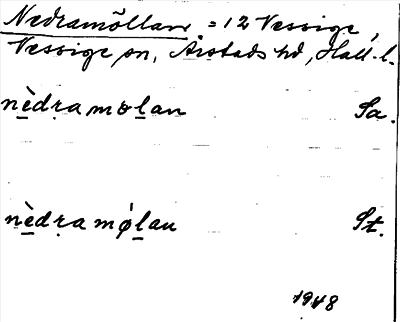 Nedramöllan = 12 Vessige,
Vessige sn, Årstads hd, Hall. l.
nèdra møլan Sa.
nèdra mǿlan St.
1948